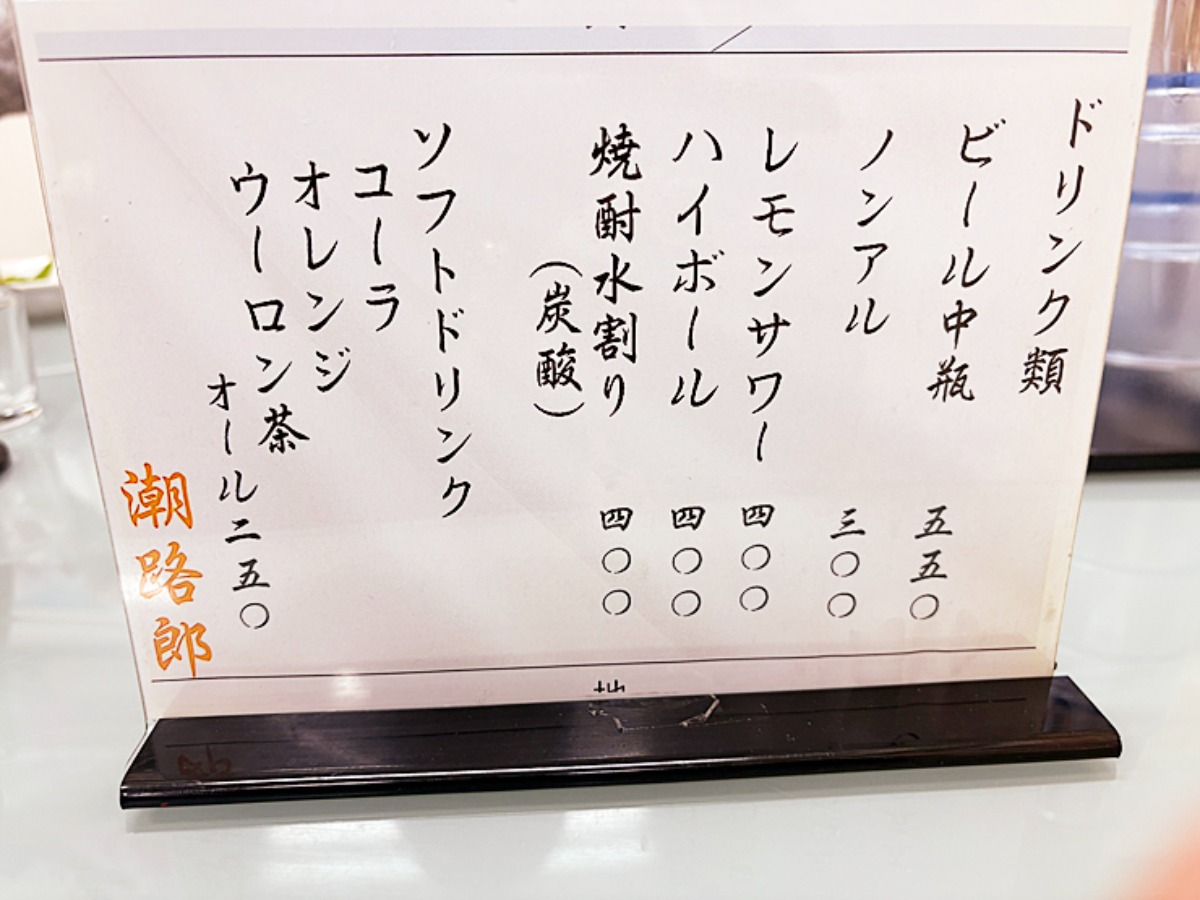 ドリンク類
ビール中瓶 五五〇
ノンアル 三〇〇
レモンサワー 四〇〇
ハイボール 四〇〇
焼酎水割り 四〇〇
(炭酸)
ソフトドリンク
コーラ
オレンジ
ウーロン茶
オール二五〇
潮路郎